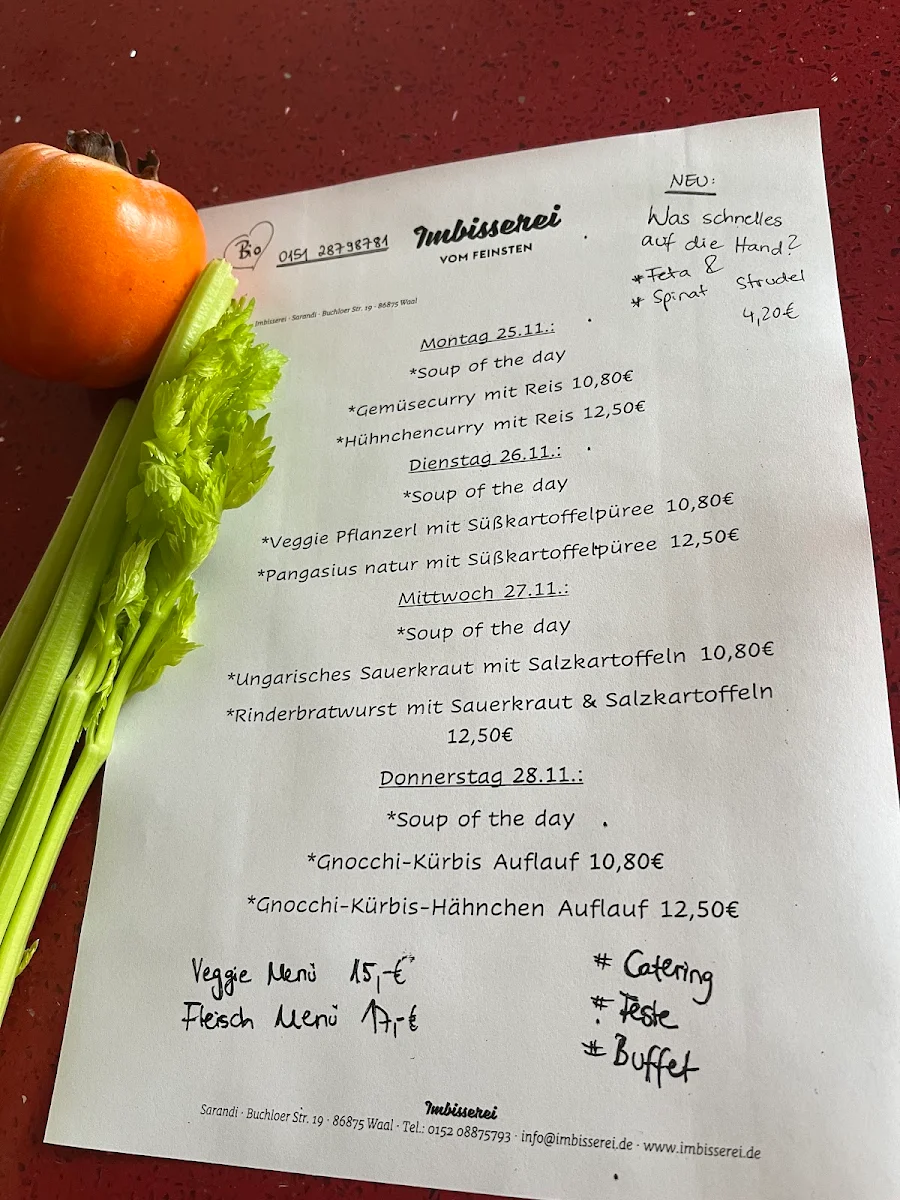 Bio
0151 28798781
Imbisserei
VOM FEINSTEN
NEU:
Was schnelles
auf die Hand?
* Feta &
* Spinat Strudel
4,20€
Imbisserei · Sarandi · Buchloer Str. 19 · 86875 Waal
Montag 25.11.:
*Soup of the day
*Gemüsecurry mit Reis 10,80€
*Hühnchencurry mit Reis 12,50€
Dienstag 26.11.:
*Soup of the day
*Veggie Pflanzerl mit Süßkartoffelpüree 10,80€
*Pangasius natur mit Süßkartoffelpüree 12,50€
Mittwoch 27.11.:
*Soup of the day
*Ungarisches Sauerkraut mit Salzkartoffeln 10,80€
*Rinderbratwurst mit Sauerkraut & Salzkartoffeln
12,50€
Donnerstag 28.11.:
*Soup of the day
*Gnocchi-Kürbis Auflauf 10,80€
*Gnocchi-Kürbis-Hähnchen Auflauf 12,50€
Veggie Menü 15,-€
Fleisch Menü 17,-€
# Catering
# Feste
# Buffet
Imbisserei
Sarandi · Buchloer Str. 19 · 86875 Waal · Tel.: 0152 08875793 · info@imbisserei.de · www.imbisserei.de